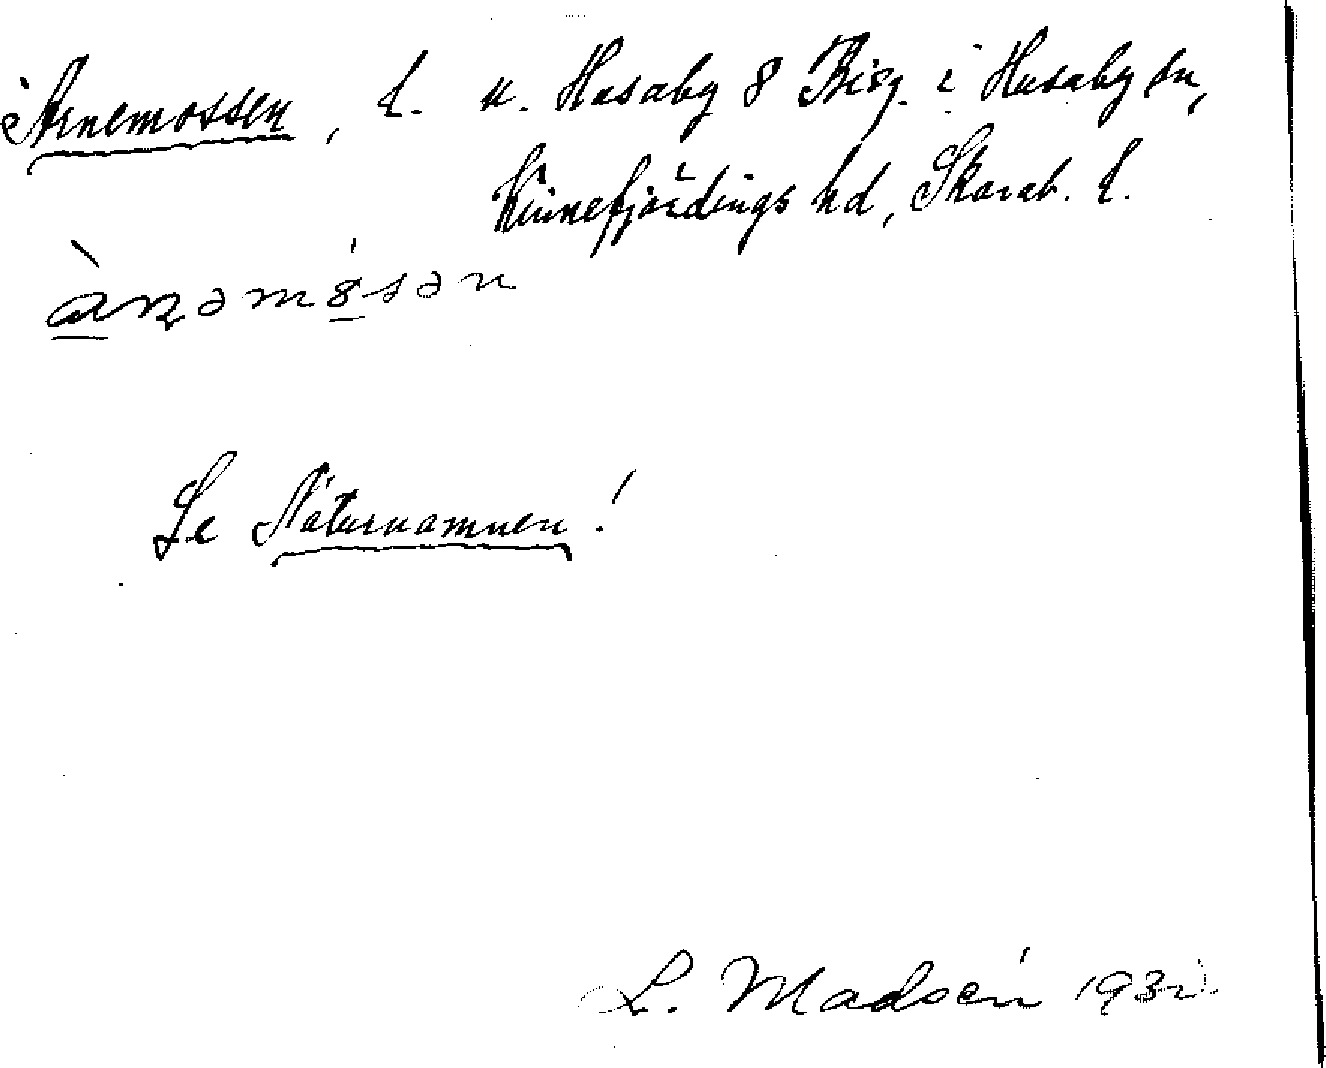 Arnemossen, l. u. Husaby 8 Bisg. i Husaby sn,
Kinnefjärdings hd, Skarab. l.
Se Naturnamnen!
L. Madsén 1932